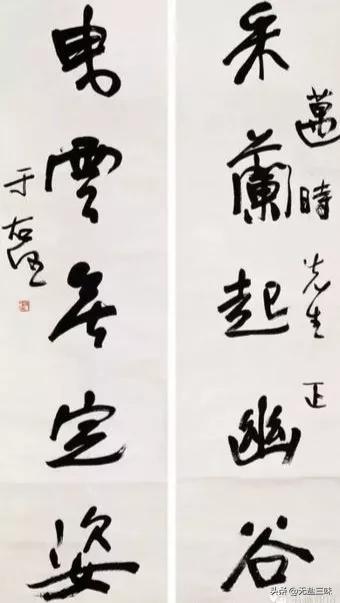 邁時先生 正
采蘭起幽谷
東雲無定姿
于右任
头条 @无盐三味